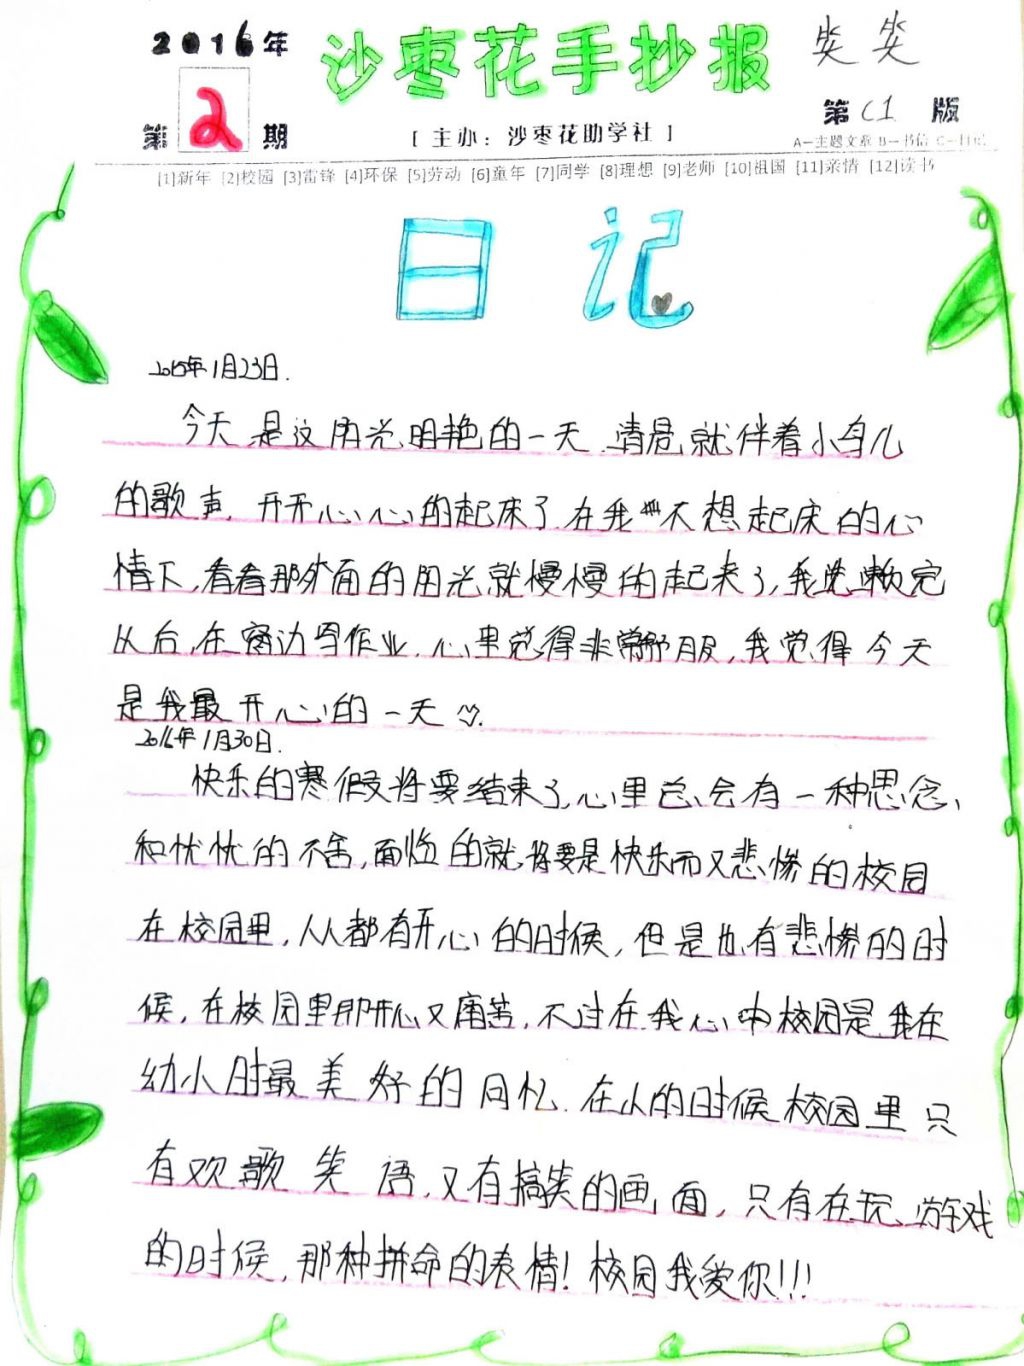 2016年
沙枣花手抄报
第2期
[ 主办：沙枣花助学社 ]
第 C1 版
A—主题文章 B—书信 C—日记
[1]新年 [2]校园 [3]雷锋 [4]环保 [5]劳动 [6]童年 [7]同学 [8]理想 [9]老师 [10]祖国 [11]亲情 [12]读书
日记
2015年1月23日.
今天是这阳光明艳的一天.清晨就伴着小鸟儿
的歌声，开开心心的起床了.在我不想起床的心
情下,看看那外面的阳光就慢慢的起来了,我洗漱完
从后,在窗边写作业，心里觉得非常舒服,我觉得今天
是我最开心的一天
2016年1月30日.
快乐的寒假将要结束了,心里总会有一种思念、
和忧忧的不舍,面临的就将要是快乐而又悲惨的校园
在校园里,人人都有开心的时候,但是也有悲惨的时
候,在校园里那开心又痛苦,不过在我心中校园是我在
幼小时最美好的回忆.在小的时候校园里只
有欢歌笑语,又有搞笑的画面,只有在玩游戏
的时候,那种拼命的表情!校园我爱你!!!